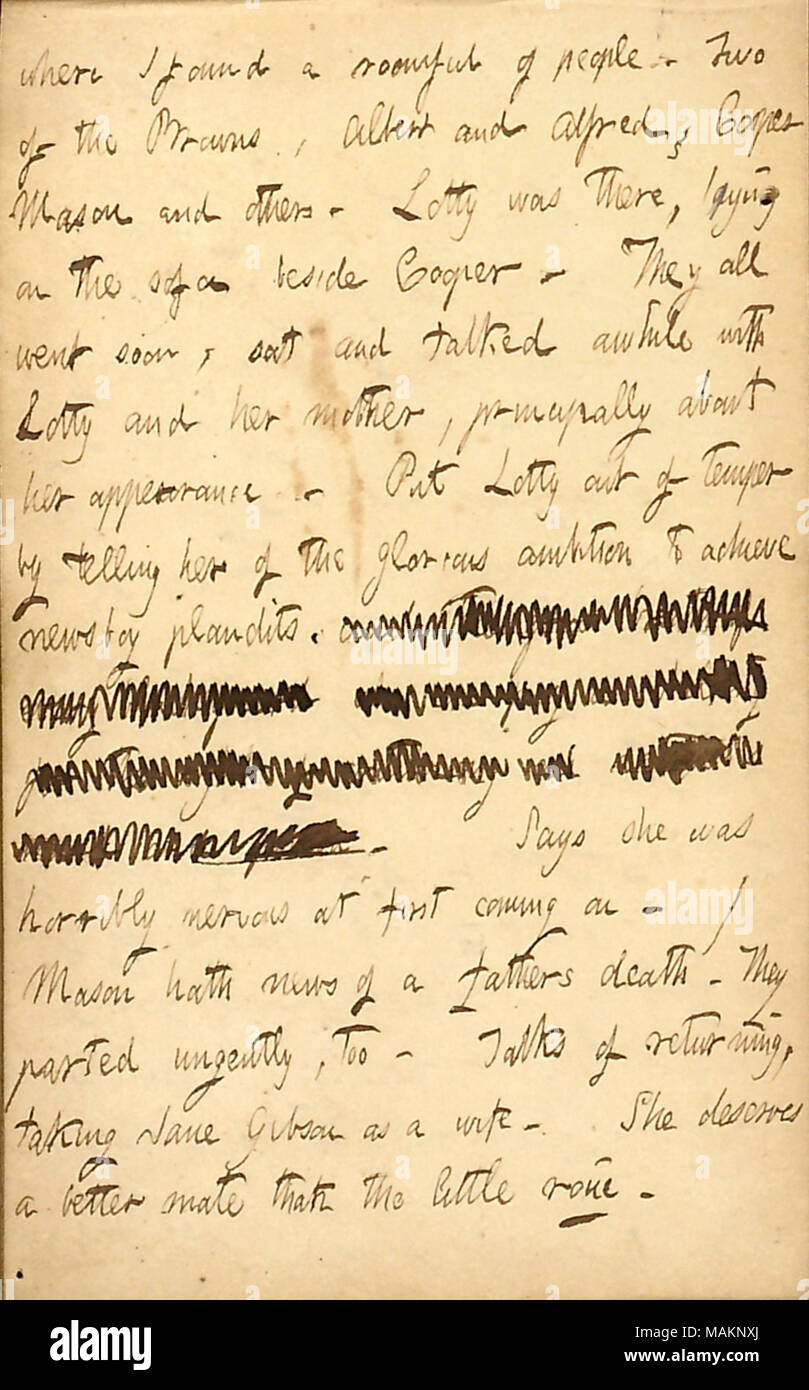 where I found a roomful of people. Two
of the Browns, Albert and Alfred, Cooper
Mason and others. Lotty was there, lying
on the sofa beside Cooper. They all
went soon, sat and talked awhile with
Lotty and her mother, principally about
her appearance. Put Lotty out of temper
by telling her of the glorious ambition to achieve
newsboy plaudits.
Says she was
horribly nervous at first coming on. /
Mason hath news of a fathers death. They
parted ungently, too. Talks of returning,
taking Jane Gibson as a wife. She deserves
a better mate than the little roué.
alamy
Image ID: MAKNXJ
www.alamy.com